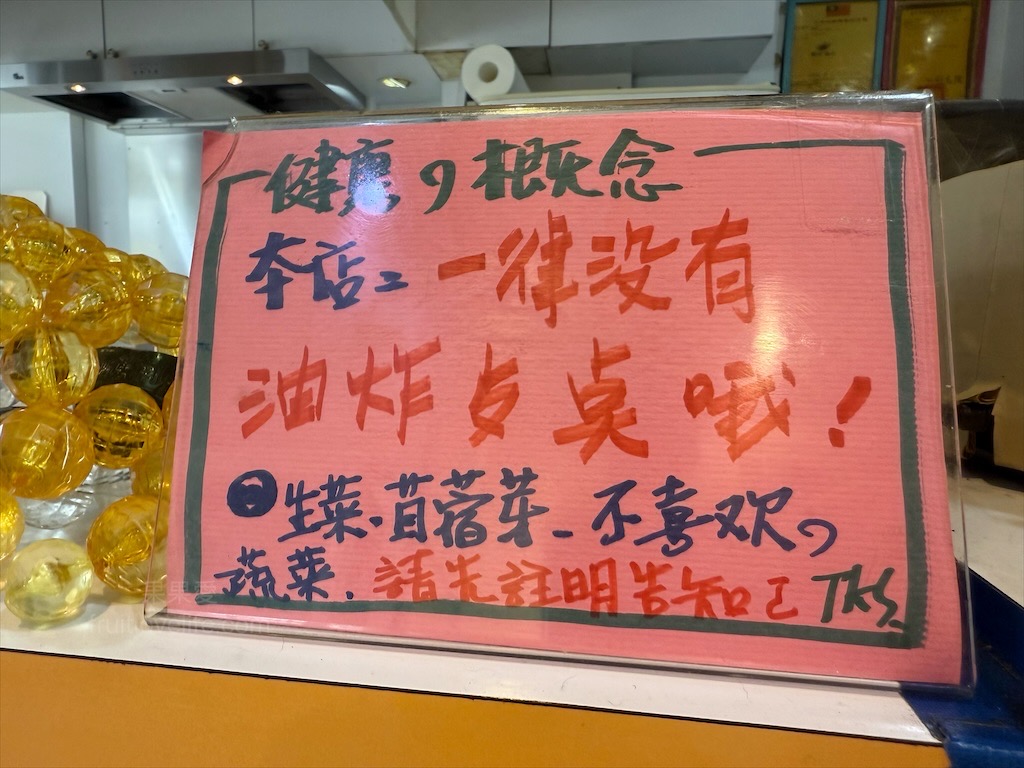 健康の概念
本店：一律没有
油炸点点哦！
生菜、苜蓿芽、不喜欢の
蔬菜、請先註明告知 TKS